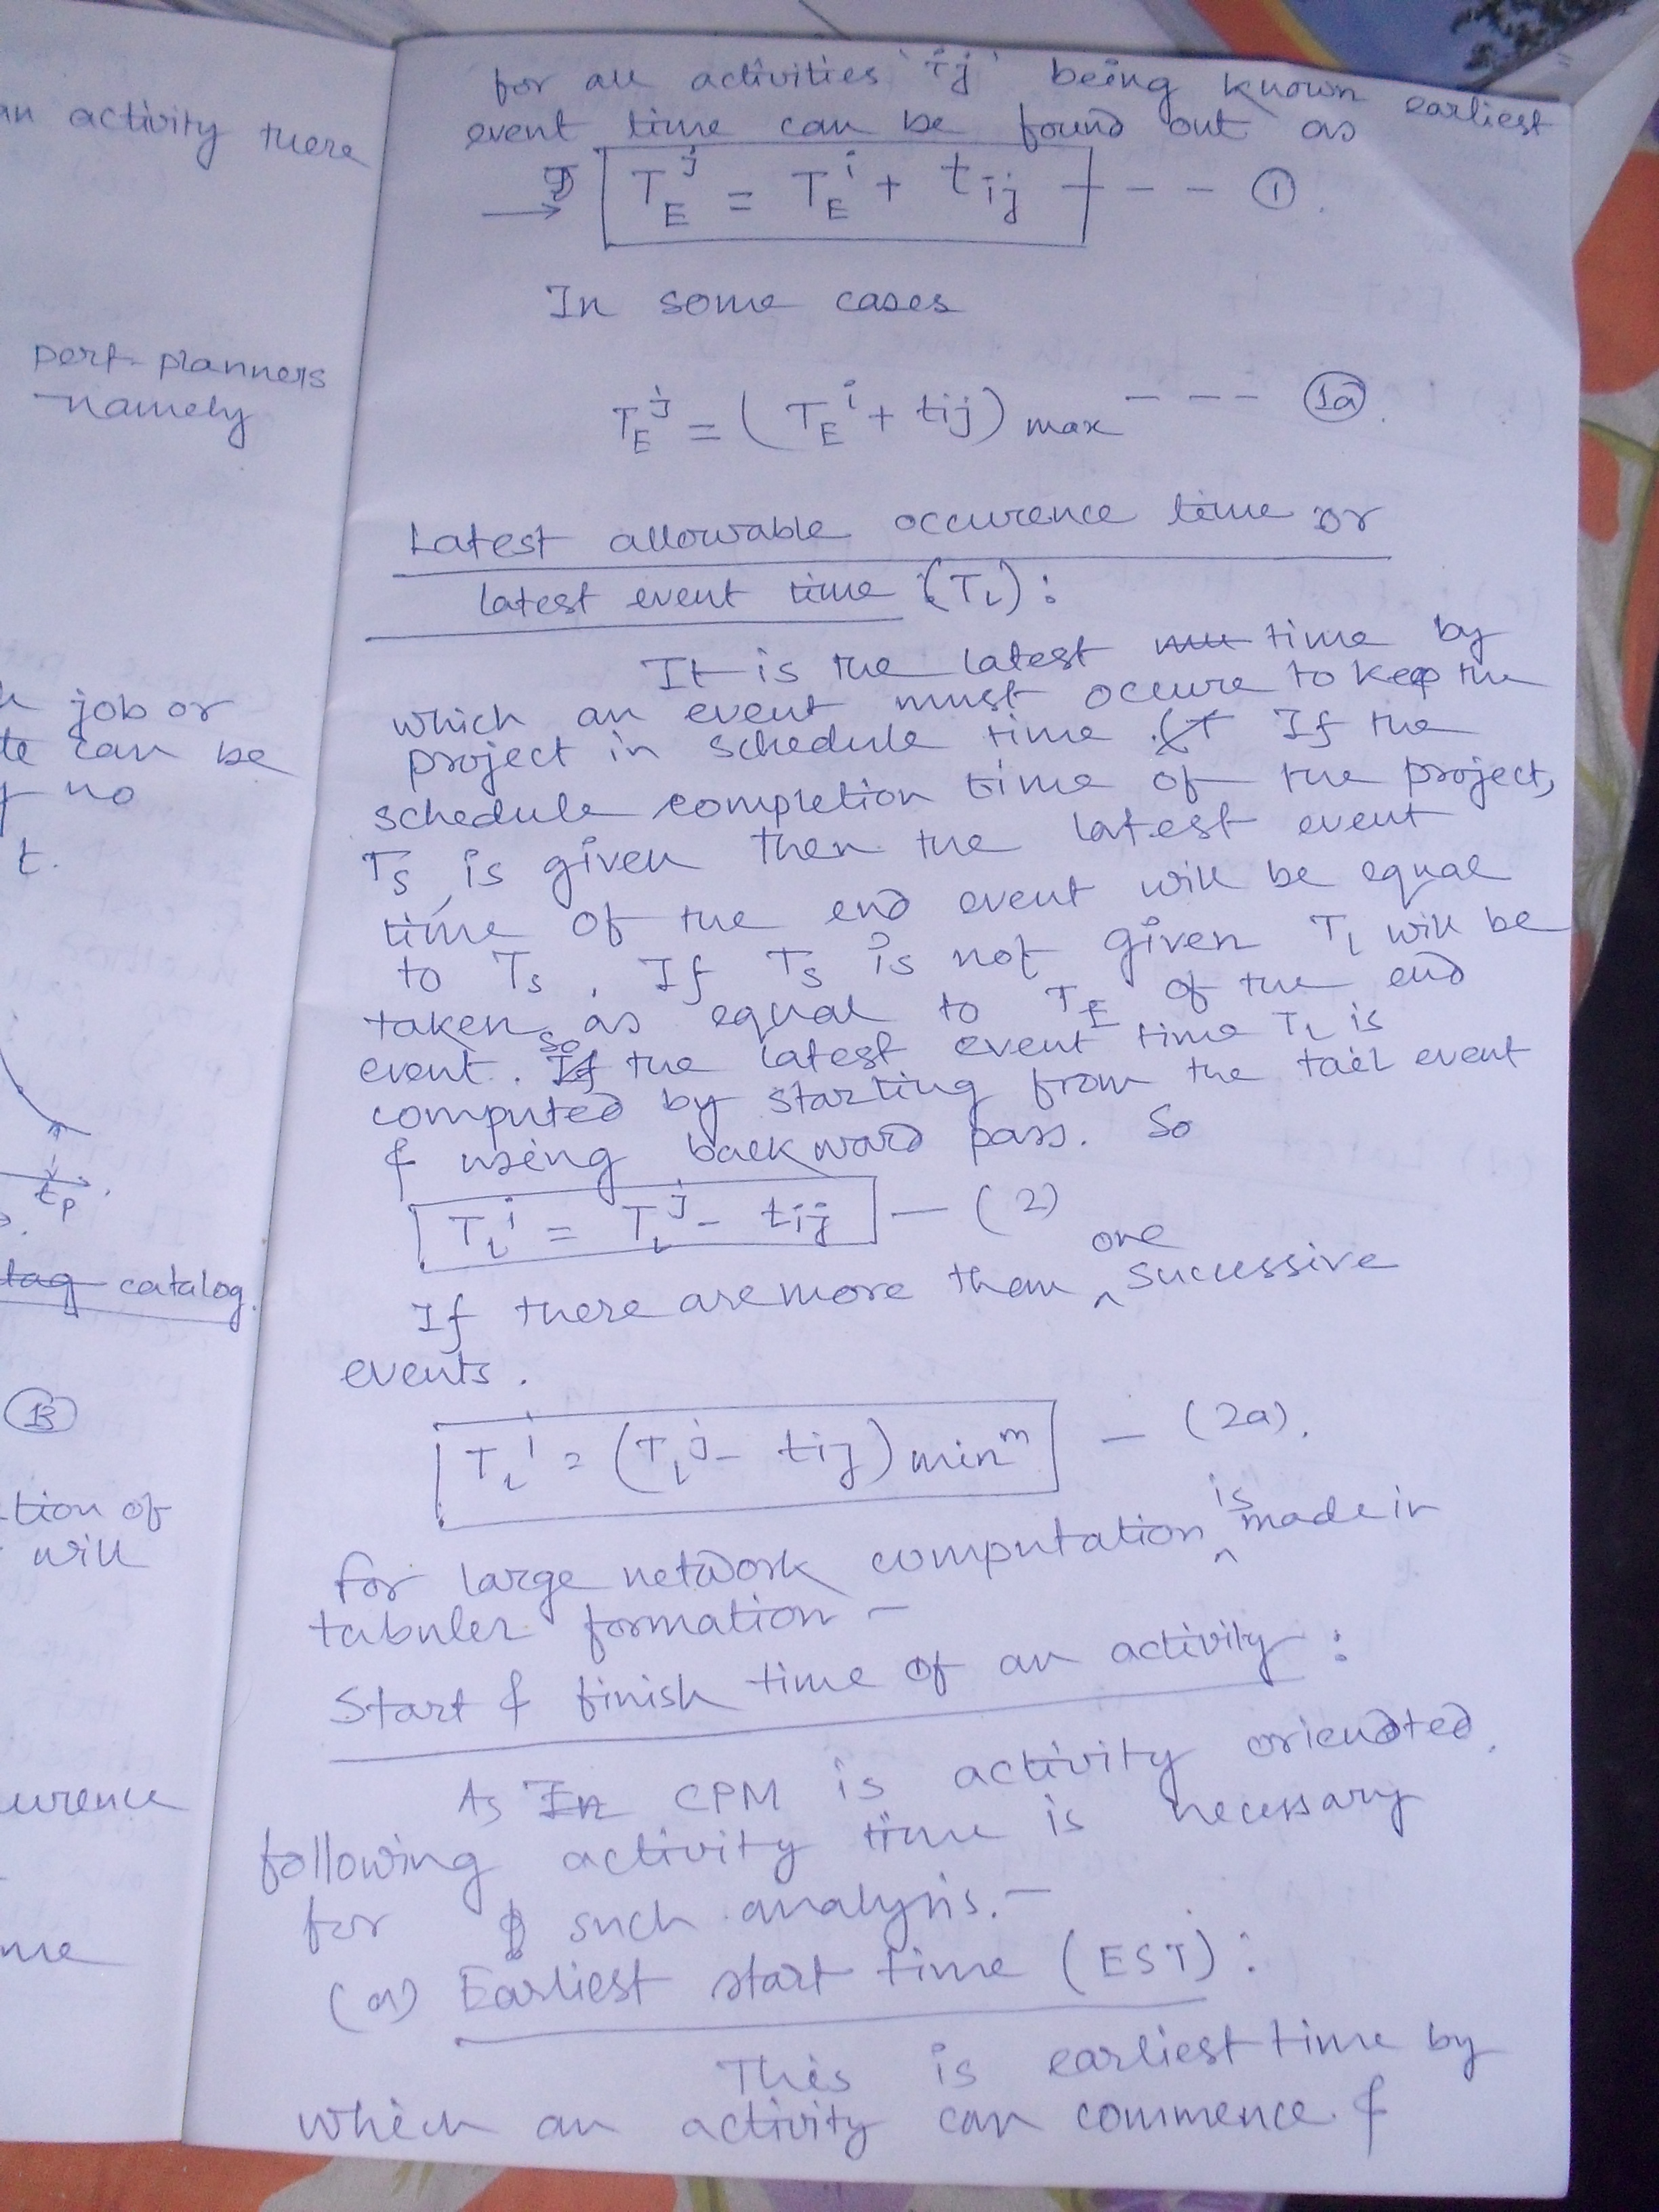 an activity there
pert-planners
namely
job or
can be
no
t.
tp
catalog.
B
tion of
will
for all activities 'ij' being known earliest
event time can be found out as
→ T_E^j = T_E^i + tij --- 1.
In some cases
T_E^j = (T_E^i + tij) max --- 1a.
Latest allowable occurence time or
latest event time (T_L):
It is the latest time by
which an event must occure to keep the
project in schedule time. If the
schedule completion time of the project,
Ts, is given then the latest event
time of the end event will be equal
to Ts. If Ts is not given T_L will be
taken as equal to T_E of the end
event. so the latest event time T_L is
computed by starting from the tail event
& using backward pass. So
T_L^i = T_L^j - tij — (2)
If there are more than one successive
events.
T_L^i = (T_L^j - tij) min^m — (2a).
for large network computation is made in
tabuler formation —
Start & finish time of an activity:
As In CPM is activity oriendted.
following activity time is necessary
for such analysis. —
(a) Earliest start time (EST):
This is earliest time by
which an activity can commence &